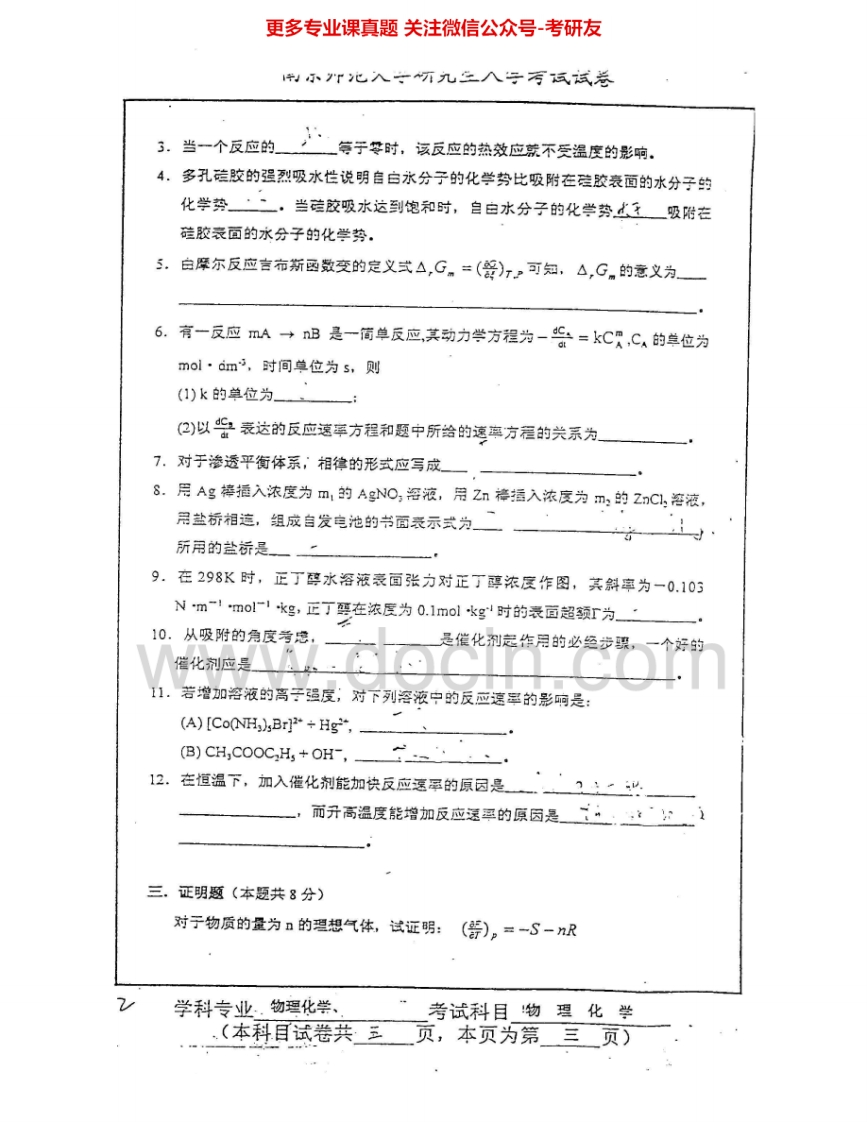 更多专业课真题 关注微信公众号-考研友
南京师范大学研究生入学考试试卷
3. 当一个反应的______等于零时，该反应的热效应就不受温度的影响。
4. 多孔硅胶的强烈吸水性说明自由水分子的化学势比吸附在硅胶表面的水分子的
化学势____。当硅胶吸水达到饱和时，自由水分子的化学势____吸附在
硅胶表面的水分子的化学势。
5. 由摩尔反应吉布斯函数变的定义式Δ,Gₘ = (∂G/∂ξ)T,P 可知，Δ,Gₘ的意义为___
______。
6. 有一反应 mA → nB 是一简单反应,其动力学方程为 − dC_A/dt = kC_A^m ,C_A 的单位为
mol·dm⁻³，时间单位为 s，则
(1) k 的单位为________；
(2)以 dC_B/dt 表达的反应速率方程和题中所给的速率方程的关系为________。
7. 对于渗透平衡体系，相律的形式应写成________。
8. 用 Ag 棒插入浓度为 m₁ 的 AgNO₃ 溶液，用 Zn 棒插入浓度为 m₂ 的 ZnCl₂ 溶液，
用盐桥相连，组成自发电池的书面表示式为________，
所用的盐桥是________。
9. 在 298K 时，正丁醇水溶液表面张力对正丁醇浓度作图，其斜率为−0.103
N·m⁻¹·mol⁻¹·kg, 正丁醇在浓度为 0.1mol·kg⁻¹ 时的表面超额Γ为____
10. 从吸附的角度考虑，________是催化剂起作用的必经步骤，一个好的
催化剂应是________。
www.docin.com
11. 若增加溶液的离子强度，对下列溶液中的反应速率的影响是：
(A) [Co(NH₃)₅Br]²⁺ + Hg²⁺, ________。
(B) CH₃COOC₂H₅ + OH⁻, ________。
12. 在恒温下，加入催化剂能加快反应速率的原因是________
________，而升高温度能增加反应速率的原因是________
________。
三．证明题（本题共 8 分）
对于物质的量为 n 的理想气体，试证明： (∂F/∂T)p = −S − nR
2 学科专业 物理化学、 考试科目 物 理 化 学
（本科目试卷共 五 页，本页为第 三 页）